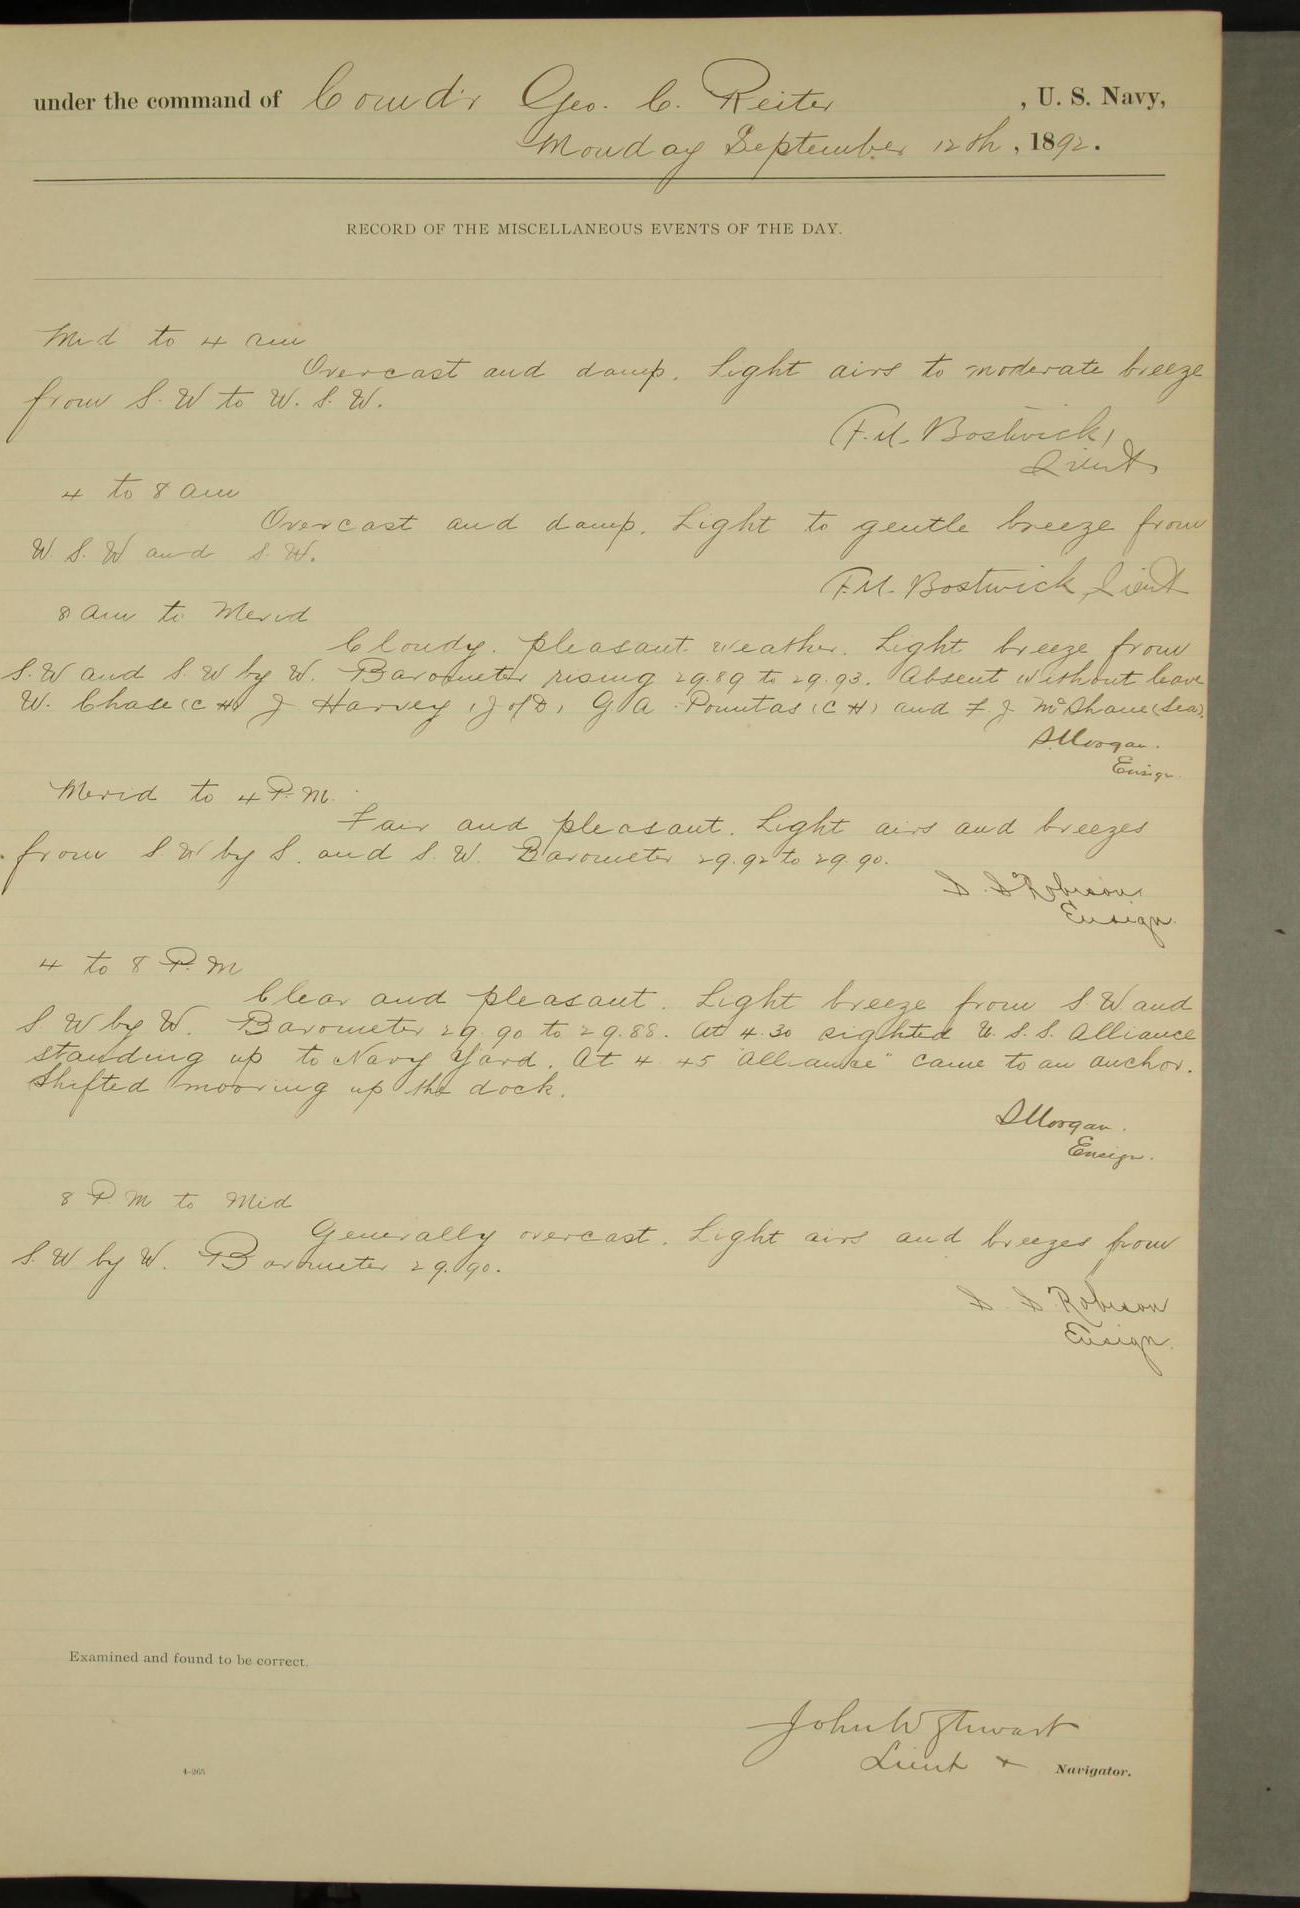 under the command of Comd'r Geo. C. Reiter , U. S. Navy,
Monday September 12th, 1892.
RECORD OF THE MISCELLANEOUS EVENTS OF THE DAY.
Mid to 4 am
Overcast and damp. Light airs to moderate breeze
from S. W to W. S. W.
F. M. Bostwick,
Lieut.
4 to 8 am
Overcast and damp. Light to gentle breeze from
W. S. W and S. W.
F. M. Bostwick, Lieut
8 am to Merid
Cloudy. pleasant weather. Light breeze from
S. W and S. W by W. Barometer rising 29.89 to 29.93. Absent without leave
W. Chase (C H) J Harvey (J of D) G A (C H) and F. J. McShane (Sea).
Morgan.
Ensign.
Merid to 4 P. M.
Fair and pleasant. Light airs and breezes
from S. W by S. and S. W. Barometer 29.92 to 29.90.
S. S. Robison.
Ensign.
4 to 8 P. M
Clear and pleasant. Light breeze from S. W and
S. W by W. Barometer 29.90 to 29.88. At 4.30 sighted U. S. S. Alliance
standing up to Navy Yard. At 4 45 "Alliance" came to an anchor.
Shifted mooring up the dock.
Morgan.
Ensign.
8 P. M to Mid
Generally overcast. Light airs and breezes from
S. W by W. Barometer 29.90.
S. S. Robison
Ensign.
Examined and found to be correct.
John W Stewart
Lieut & Navigator.
4-265